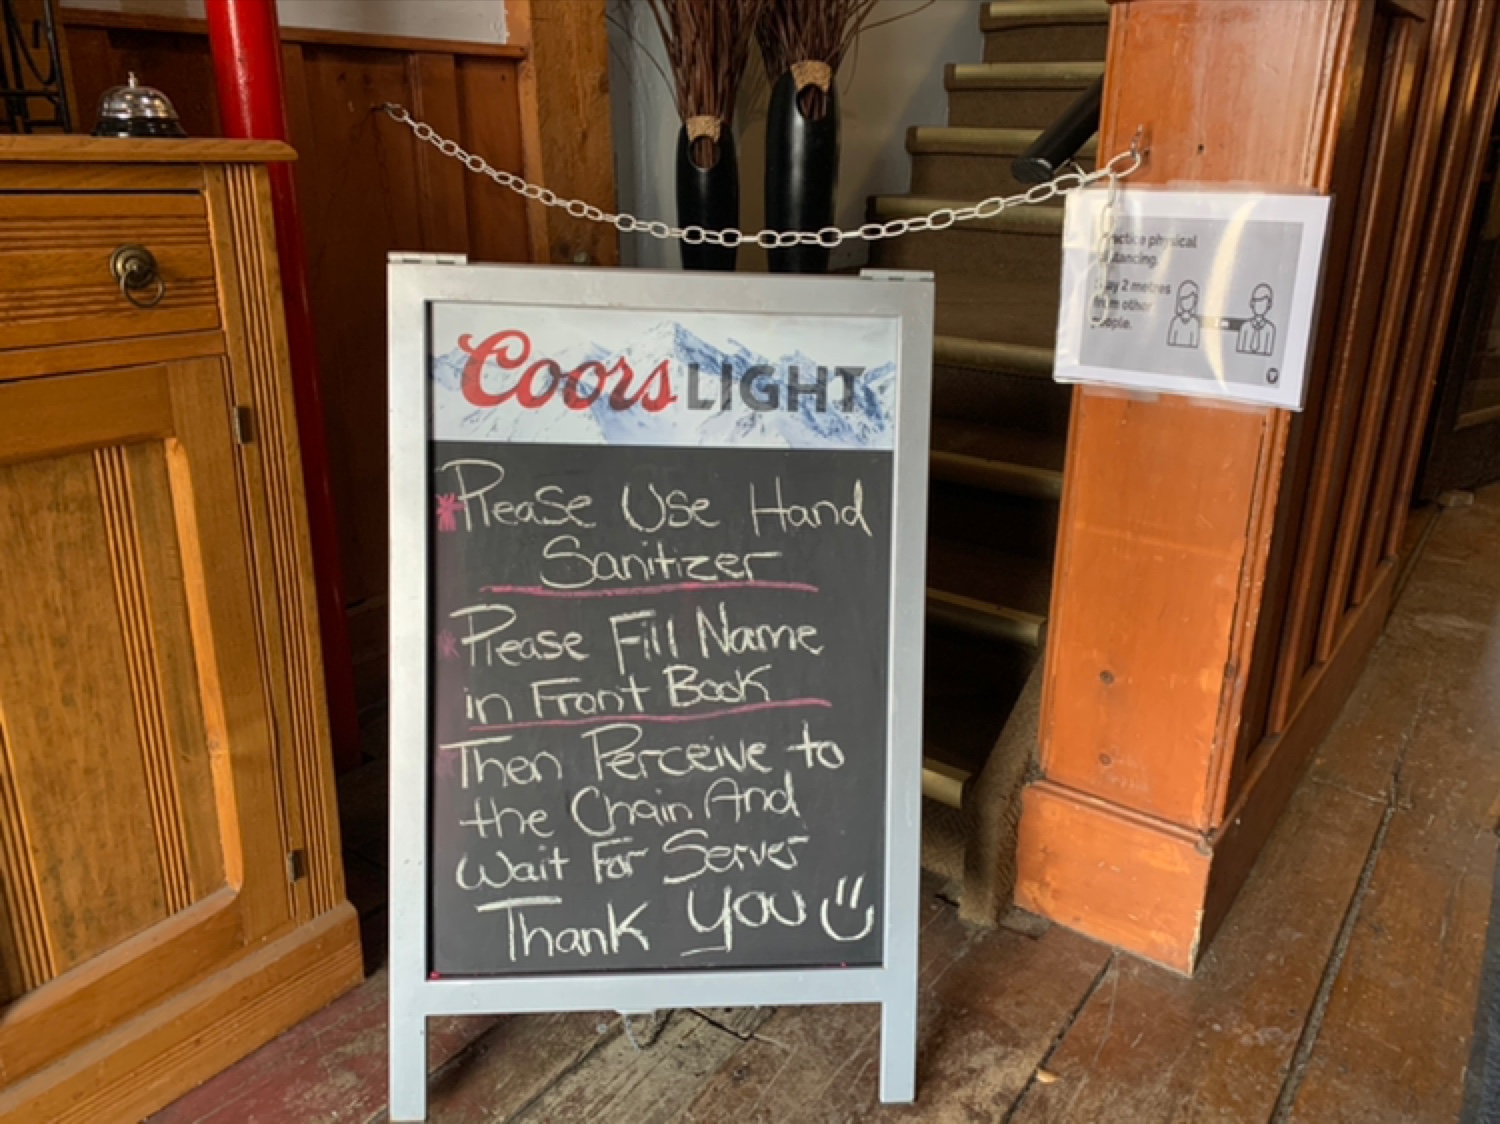 Coors LIGHT
*Please Use Hand
Sanitizer
*Please Fill Name
in Front Book
Then Perceive to
the Chain And
Wait For Server
Thank You
physical
Stay 2 metres
from other
people.